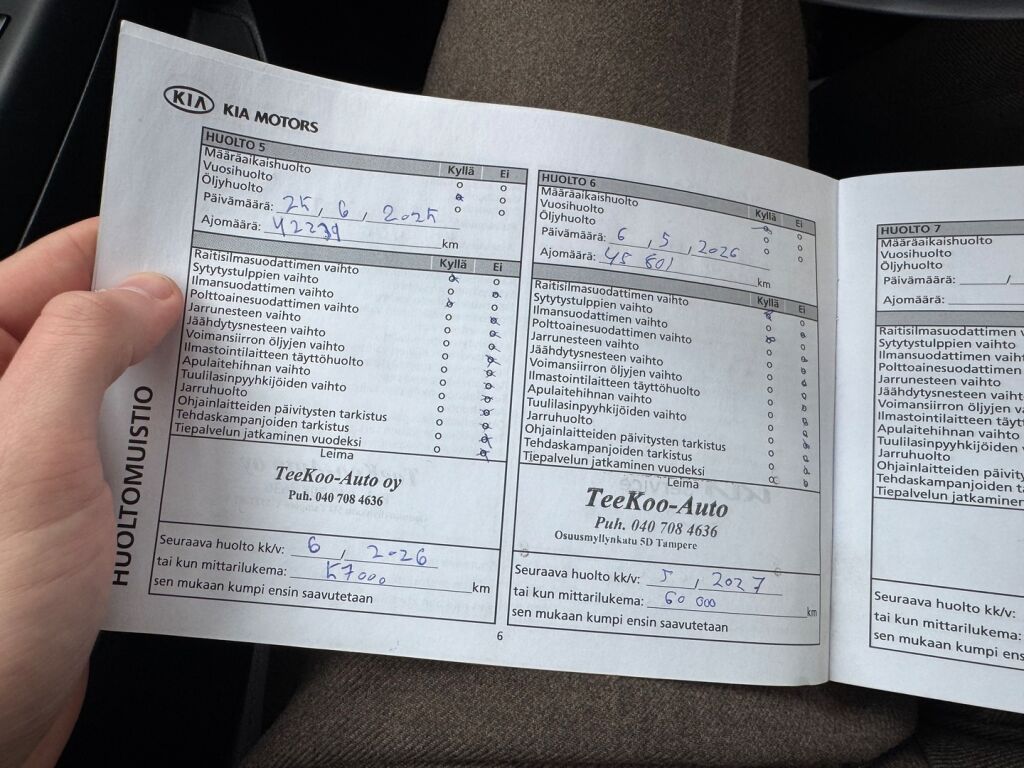 KIA KIA MOTORS
HUOLTOMUISTIO
HUOLTO 5
Kyllä Ei
Määräaikaishuolto
Vuosihuolto
Öljyhuolto
Päivämäärä: 25, 6, 2025
Ajomäärä: 42239 km
Kyllä Ei
Raitisilmasuodattimen vaihto
Sytytystulppien vaihto
Ilmansuodattimen vaihto
Polttoainesuodattimen vaihto
Jarrunesteen vaihto
Jäähdytysnesteen vaihto
Voimansiirron öljyjen vaihto
Ilmastointilaitteen täyttöhuolto
Apulaitehihnan vaihto
Tuulilasinpyyhkijöiden vaihto
Jarruhuolto
Ohjainlaitteiden päivitysten tarkistus
Tehdaskampanjoiden tarkistus
Tiepalvelun jatkaminen vuodeksi
Leima
TeeKoo-Auto oy
Puh. 040 708 4636
Seuraava huolto kk/v: 6, 2026
tai kun mittarilukema: 57000 km
sen mukaan kumpi ensin saavutetaan
HUOLTO 6
Kyllä Ei
Määräaikaishuolto
Vuosihuolto
Öljyhuolto
Päivämäärä: 6, 5, 2026
Ajomäärä: 45 801 km
Kyllä Ei
Raitisilmasuodattimen vaihto
Sytytystulppien vaihto
Ilmansuodattimen vaihto
Polttoainesuodattimen vaihto
Jarrunesteen vaihto
Jäähdytysnesteen vaihto
Voimansiirron öljyjen vaihto
Ilmastointilaitteen täyttöhuolto
Apulaitehihnan vaihto
Tuulilasinpyyhkijöiden vaihto
Jarruhuolto
Ohjainlaitteiden päivitysten tarkistus
Tehdaskampanjoiden tarkistus
Tiepalvelun jatkaminen vuodeksi
Leima
TeeKoo-Auto
Puh. 040 708 4636
Osuusmyllynkatu 5D Tampere
Seuraava huolto kk/v: 5, 2027
tai kun mittarilukema: 60 000 km
sen mukaan kumpi ensin saavutetaan
6
HUOLTO 7
Määräaikaishuolto
Vuosihuolto
Öljyhuolto
Päivämäärä: /
Ajomäärä:
Raitisilmasuodattimen v
Sytytystulppien vaihto
Ilmansuodattimen vaihto
Polttoainesuodattimen
Jarrunesteen vaihto
Jäähdytysnesteen vaihto
Voimansiirron öljyjen va
Ilmastointilaitteen täytt
Apulaitehihnan vaihto
Tuulilasinpyyhkijöiden
Jarruhuolto
Ohjainlaitteiden päivit
Tehdaskampanjoiden ta
Tiepalvelun jatkaminen
Seuraava huolto kk/v:
tai kun mittarilukema:
sen mukaan kumpi en